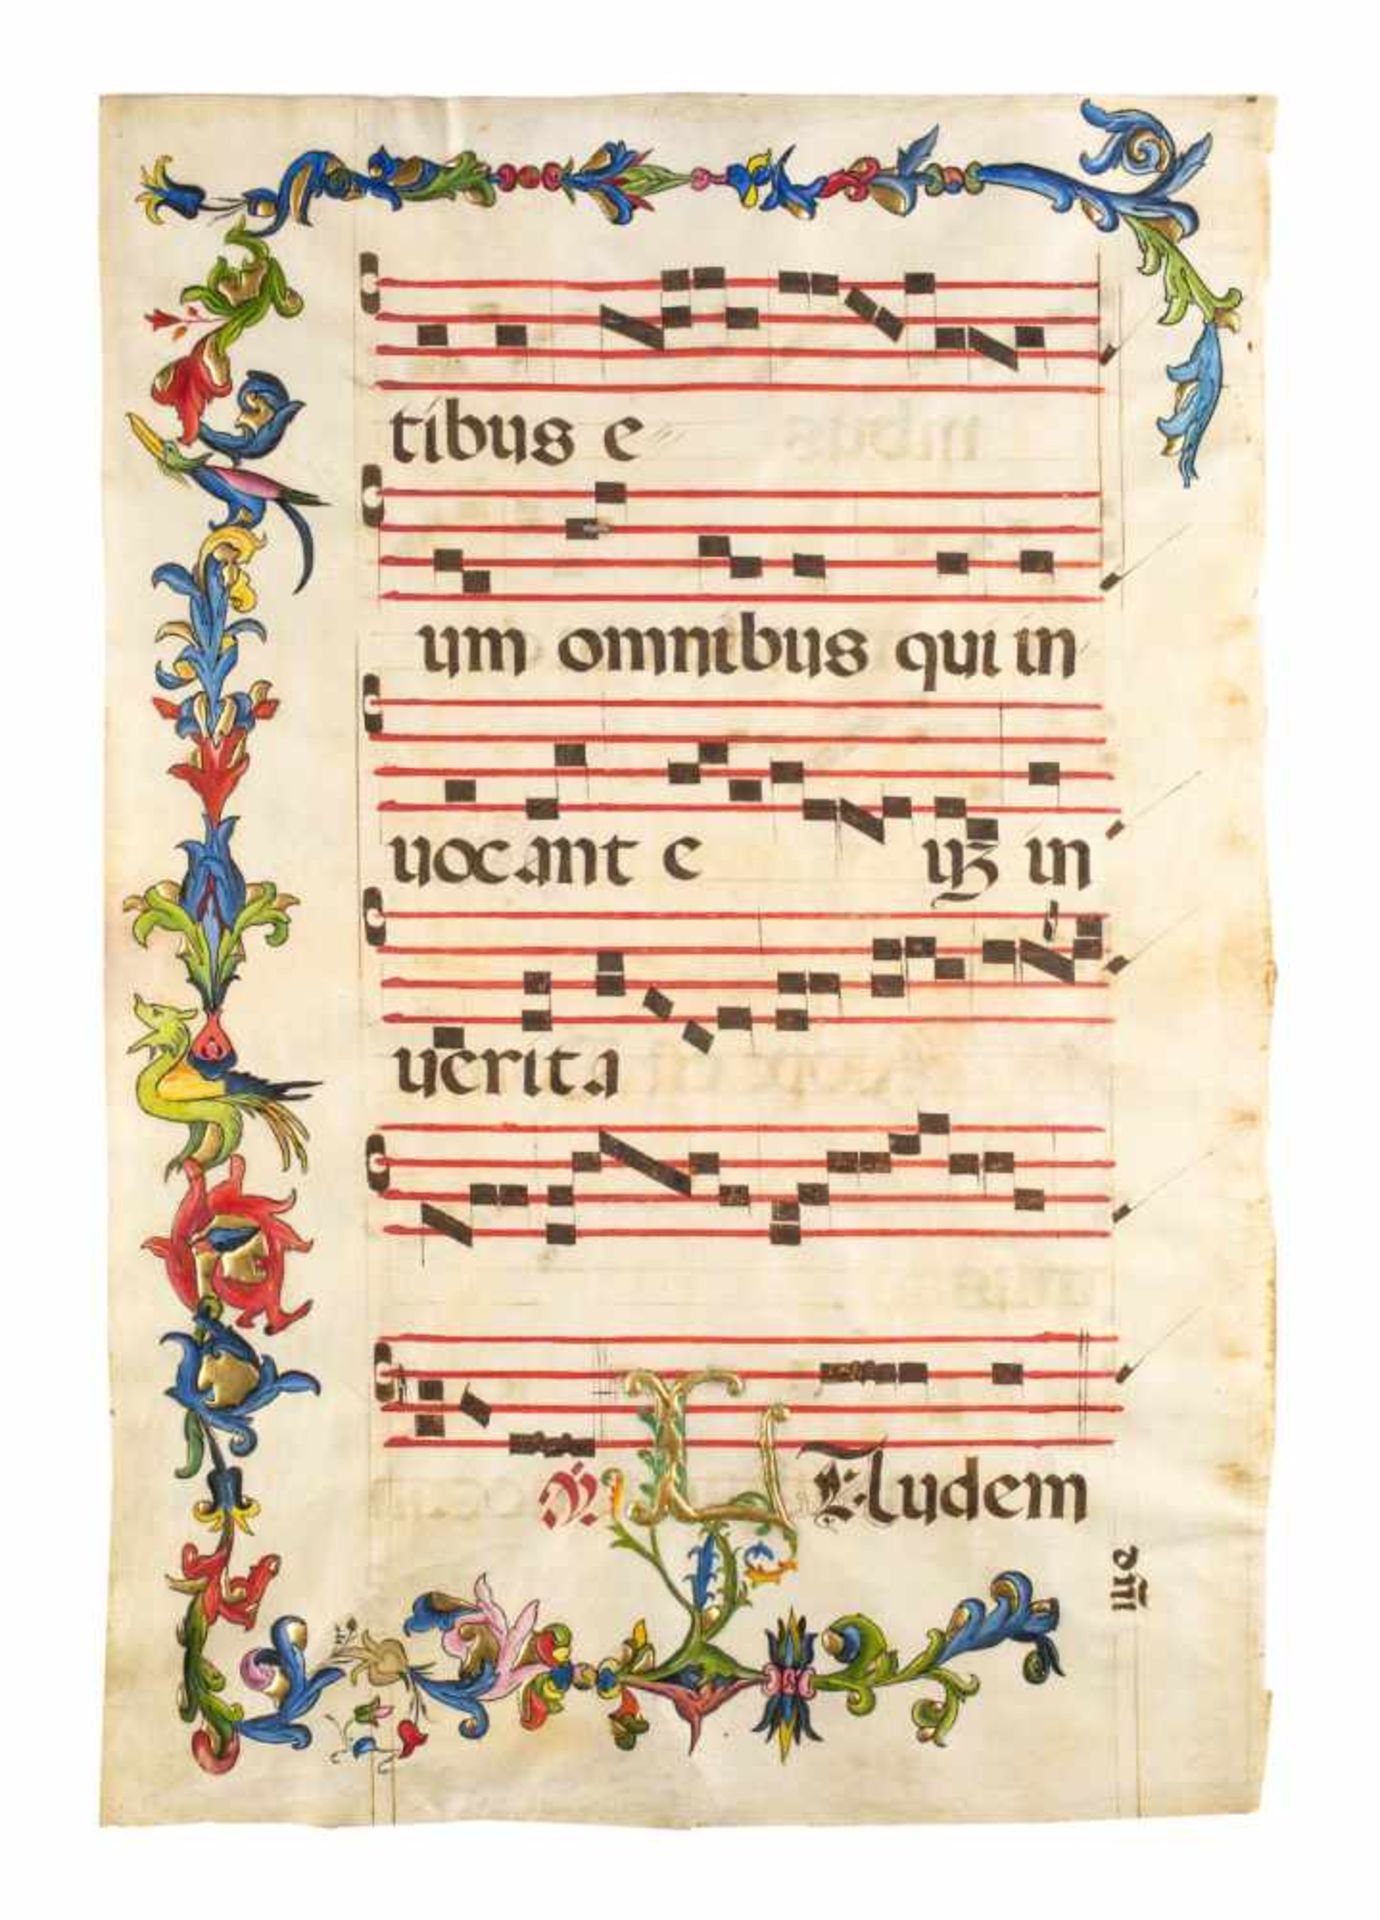 tibus e
um omnibus qui in
uocant e uʒ in
uerita
℣ L Audem